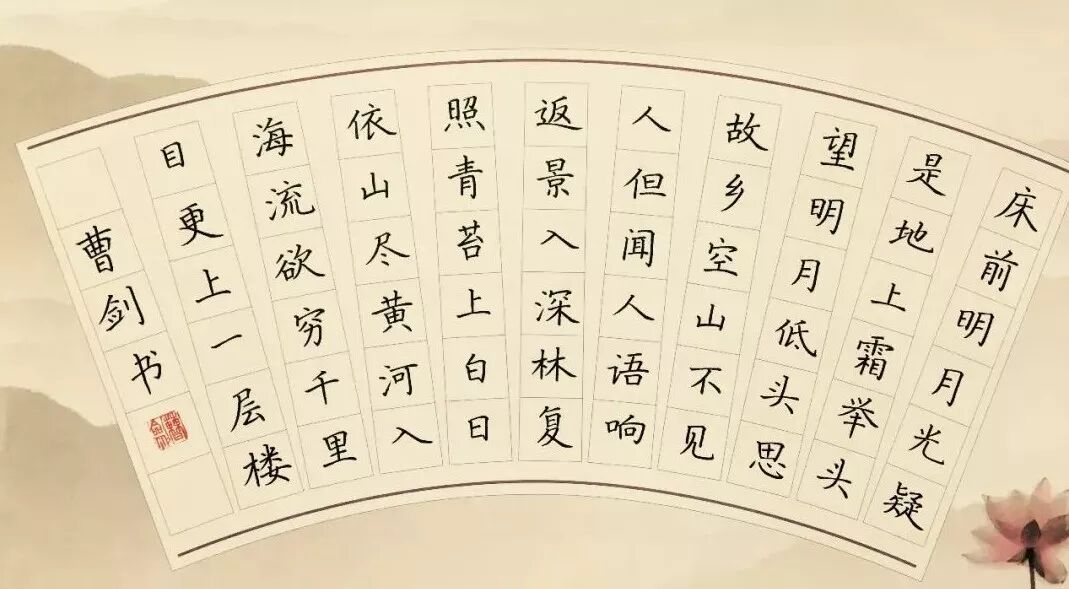 床前明月光疑
是地上霜举头
望明月低头思
故乡空山不见
人但闻人语响
返景入深林复
照青苔上白日
依山尽黄河入
海流欲穷千里
目更上一层楼
曹剑书